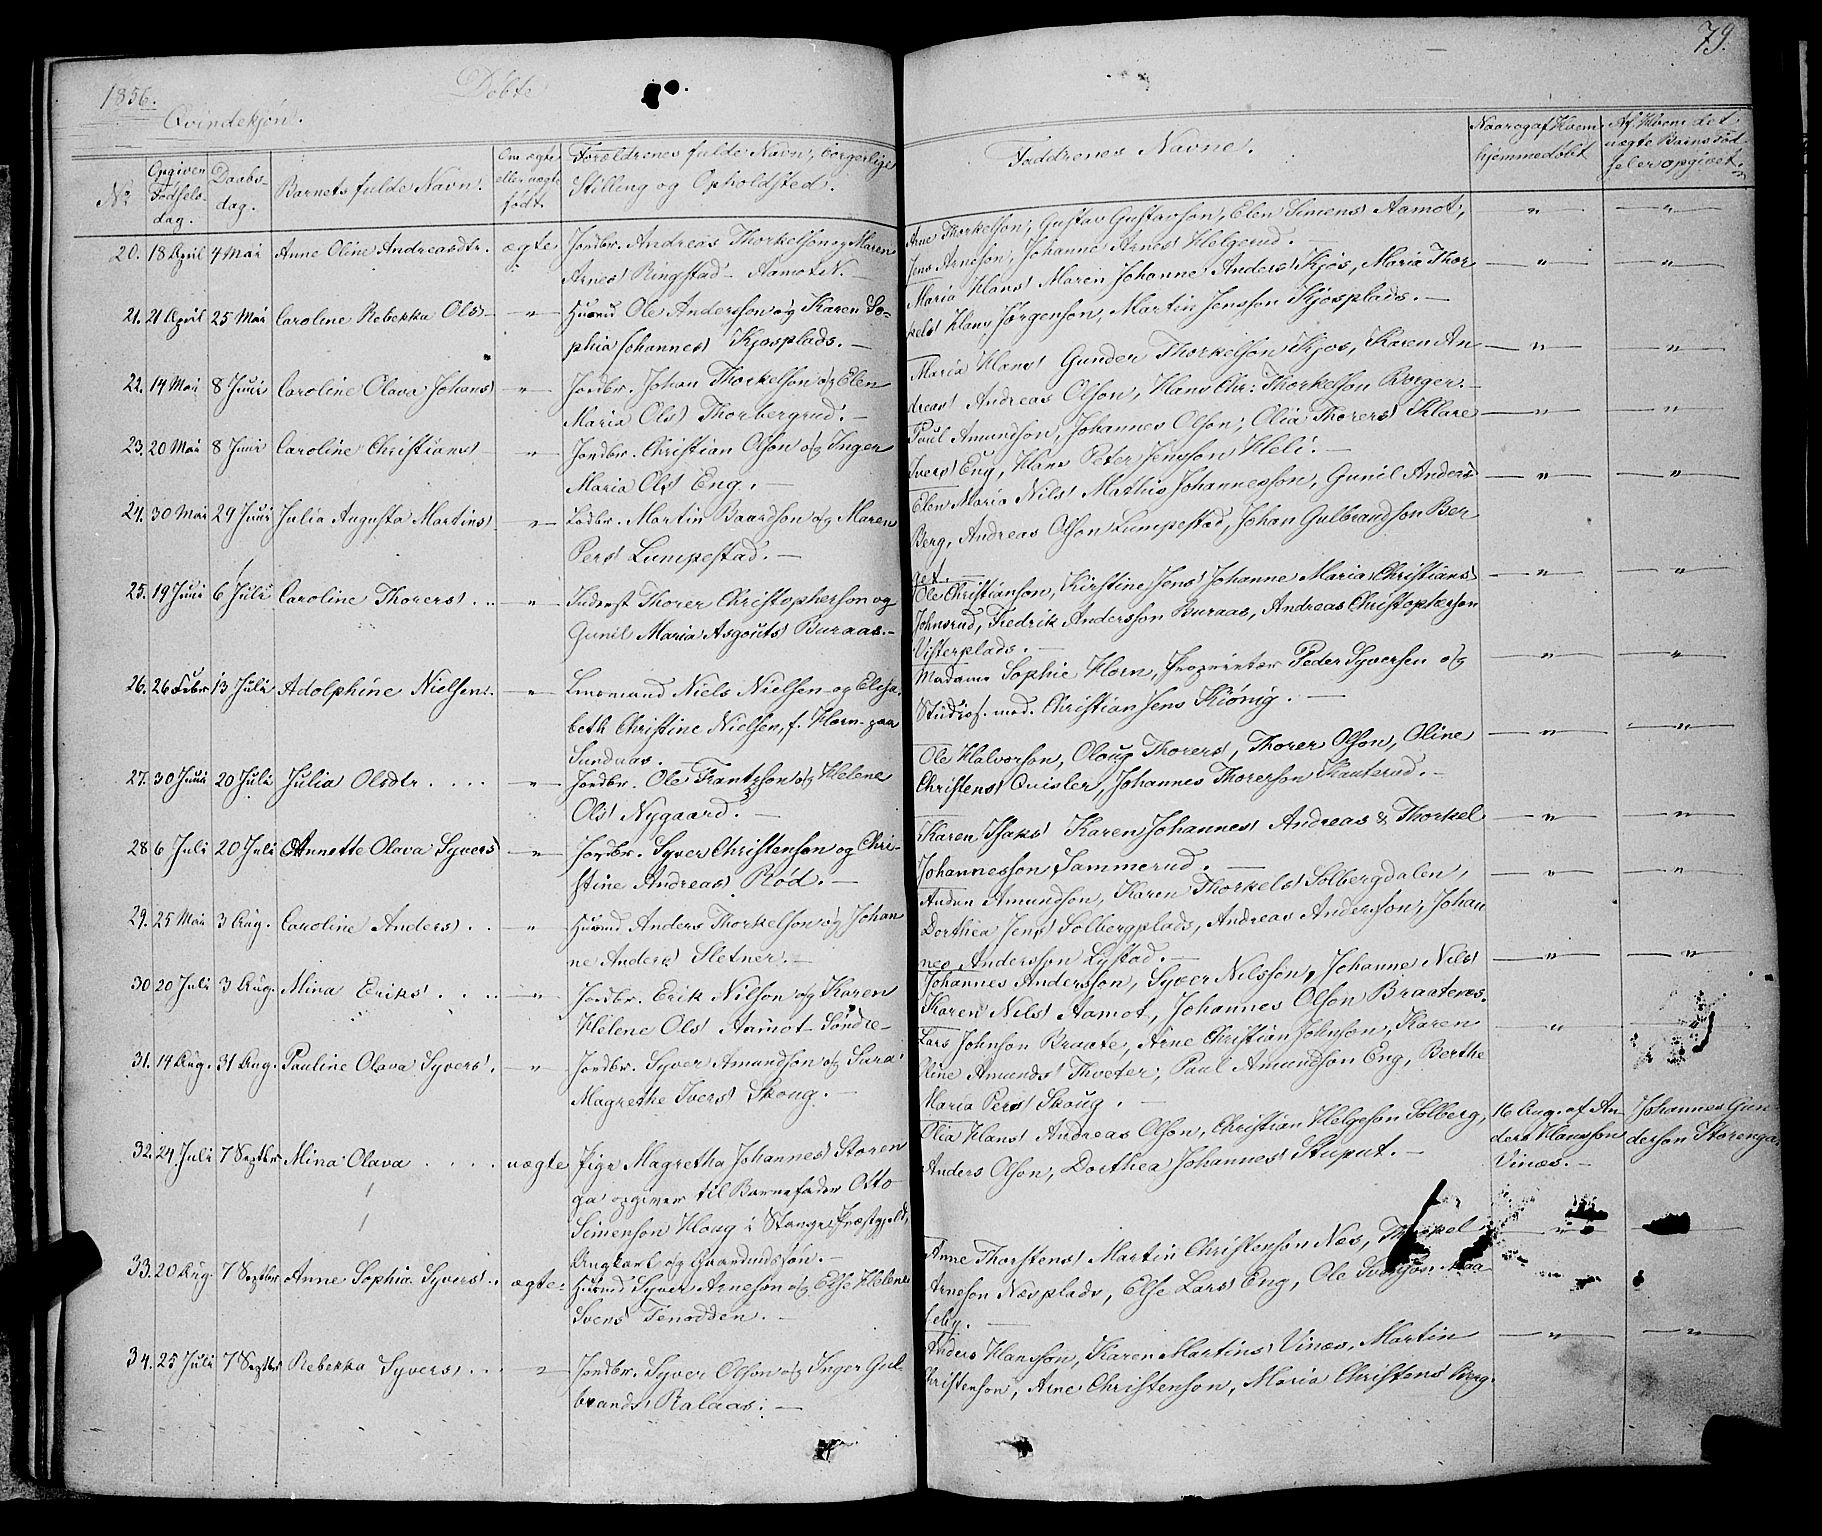 1856.
Døbte
79.
Qvindekjøn.
No
Opgiven Fødselsdag.
Daabsdag.
Barnets fulde Navn.
Om ægte eller uægte født.
Forældrenes fulde Navn, borgerlige Stilling og Opholdsted.
Faddrenes Navne.
Naar og af Hvem hjemmedøbt
Af Hvem det uægte Barns Fødsel er opgivet.
20. 18 April 4 Mai Anne Oline Andreasdtr. ægte Jordbr. Andreas Thorkelson og Maren
Arnes Ringstad - Aamot N. —
Arne Thorkelson, Gustav Gustavson, Elen Simens Aamot,
Jens Arneson, Johanne Arnes Helgerud. —
21. 21 April 25 Mai Caroline Rebekka Ols — " — Huusmd Ole Andersson og Karen So-
phia Johannes Kjosplads. —
Maria Hans Maren Johanne Anders Kjos, Maria Thor
kels Hans Jørgenson, Martin Jensson Kjosplads. —
22. 14 Mai 8 Juni Caroline Olava Johans — " — Jordbr. Johan Thorkelson og Elen
Maria Ols Thorbergrud. —
Maria Hans Gunder Thorkelson Kjos, Karen An
dreas Andreas Olson, Hans Chr: Thorkelson Ringer. —
23. 20 Mai 8 Juni Caroline Christians — " — Jordbr. Christian Olson og Inger
Maria Ols Eng. —
Paul Amundson, Johannes Olson, Olia Thorers Klare
Ivers Eng, Hans Peter Jensson Heli. —
24. 30 Mai 29 Juni Julia Augusta Martins — " — Lodbr. Martin Baardson og Maren
Pers Lumpestad. —
Elen Maria Nils Mathis Johannesson, Gunil Anders
Berg, Andreas Olson Lumpestad, Johan Gulbrandson Ber
get. —
25. 19 Juni 6 Juli Caroline Thorers . . — " — Inderst Thorer Christopherson og
Gunil Maria Asgouts Buraas. —
Ole Christianson, Kirstine Jens Johanne Maria Christians
Johnsrud, Fredrik Andersson Buraas, Andreas Christopherson
Visterplads. —
26. 26 Febr 13 Juli Adolphine Nielsen. — " — Lensmand Niels Nielsen og Elisa-
beth Christine Nielsen, f. Horn paa
Sundnas. —
Madame Sophie Horn, Proprietær Peder Syversen og
Studios. med. Christian Jens Kiønig. —
27. 30 Juni 20 Juli Julia Olsdtr . . . . — " — Jordbr. Ole Frantzson og Helene
Ols Nygaard. —
Ole Halvorson, Oloug Thorers, Thorer Olson, Oline
Christens Qvisler, Johannes Thorerson Kanterud. —
28. 6 Juli 20 Juli Annette Olava Syvers — " — Jordbr. Syver Christenson og Chri-
stine Andreas Rød. —
Karen Isaks Karen Johannes Andreas & Thorkel
Johannesson Sammerud. —
29. 25 Mai 3 Aug. Caroline Anders . . — " — Huusmd Anders Thorkelson og Johan
ne Anders Sletner. —
Anders Amundson, Karen Thorkels Solbergdalen,
Dorthea Jens Solbergplads, Andreas Andersson, Johan
nes Andersson Lystad. —
30. 20 Juli 3 Aug. Mina Eriks . . . . — " — Jordbr. Erik Nilson og Karen
Helene Ols Aamot Søndre —
Johannes Andersson, Syver Nilsson, Johanne Nils
Karen Nils Aamot, Johannes Olson Braatenes.
31. 14 Aug. 31 Aug. Pauline Olava Syvers . — " — Jordbr. Syver Amundson og Sara
Magrethe Ivers Skoug. —
Lars Johnson Braate, Arne Christian Johnson, Karen
Oline Amunds Thveter, Paul Amundson Eng, Berthe
Maria Pers Skoug. —
32. 24 Juli 7 Septbr Mina Olava . . . . uægte Pige Magretha Johannes Storen
ga opgiver til Barnefader Otto
Simenson Houg i Stange Præstegjeld,
Ungkarl og Gaardmdsøn. —
Olia Hans Andreas Olson, Christian Helgeson Solberg,
Anders Olson, Dorthea Johannes Stuput. —
16 Aug. af An
ders Hansson
Vinæs. —
Johannes Gun
derson Storenga
33. 20 Aug. 7 Septbr Anne Sophia Syvers . . ægte Huusmd Syver Arneson og Else Helene
Svens Tenodden. —
Anne Thorstens Martin Christenson Næs, Thorkel
Arneson Næsplads, Else Lars Eng, Ole Svenson Maa
leby. —
34. 25 Juli 7 Septbr Rebekka Syvers . . — " — Jordbr. Syver Olson og Inger Gul-
brands Ralaas. —
Anders Hansson, Karen Martins Vinæs, Martin
Christenson, Arne Christenson, Maria Christens Berg.